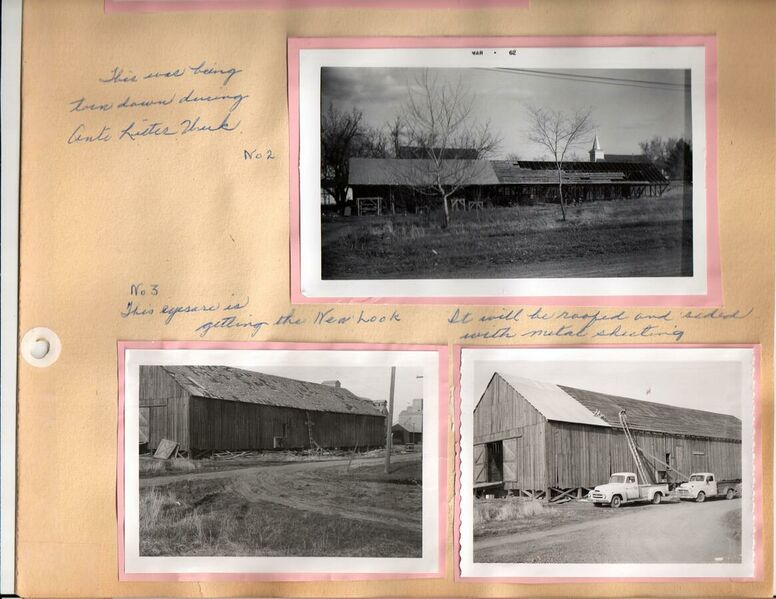 MAR • 62
This was being
torn down during
Anti Litter Week.
No 2
No 3
This eyesore is
getting the New Look
It will be roofed and sided
with metal sheeting